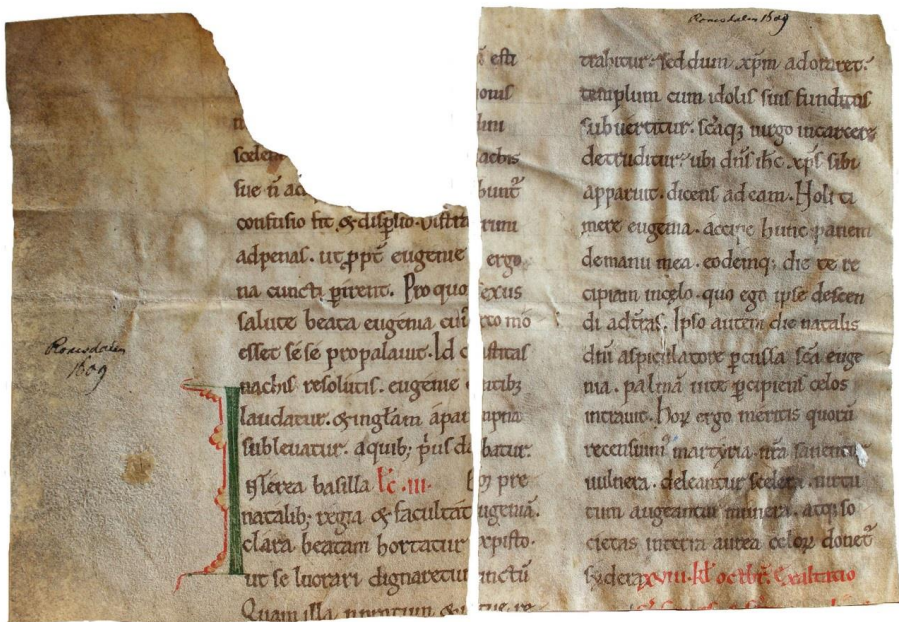 scele
sue n̄ ad
confusio fit & disp̄lio. vistra
ad penas. ut ꝓpt̄ eugenie
na cuncti ꝑirent. Pro quo
salute beata eugenia cur̄
esset sese propalauit. Id c
nachis resolutis. eugenie
laudatur. & in gl̄am a pat
subleuatur. a quib; p̄us d
Nserea basilla lc̄ .iii.
natalib; regia & facultat
clara beatam hortatur
ut se luorari dignaretur
Quam illa
Romsdalen
1609
ē esti
onis
achis
bunt̄
rum
ergo
sexus
cto mō
astitas
ntib;
mpna
batur.
pre
ugeniā.
xp̄isto.
inctū
Romsdalen 1609
trahitur. sed dum xp̄m adoraret.
templum cum idolis suis funditus
subuertitur. sc̄aq; uirgo in carcere
detruditur. ubi dn̄s ih̄c xp̄s sibi
apparuit. dicens ad eam. Noli ti
mere eugenia. accipe hunc panem
de manu mea. eodemq; die te re
cipiam in celo. quo ego ipse descen
di ad t̄ras. Ipso autem die natalis
dn̄i a spiculatore ꝑcussa sc̄a euge
nia. palmā uite ꝑcipiens celos
intrauit. hoꝝ ergo meritis quorū
recensum᷒ martyria. nr̄a sanentur
uulnera. deleantur scelera. uirtu
tum augeantur munera. atq; so
cietas intera aurea celoꝝ donet᷑
sydera xviii. kl̄ octbr̄. Exaltatio